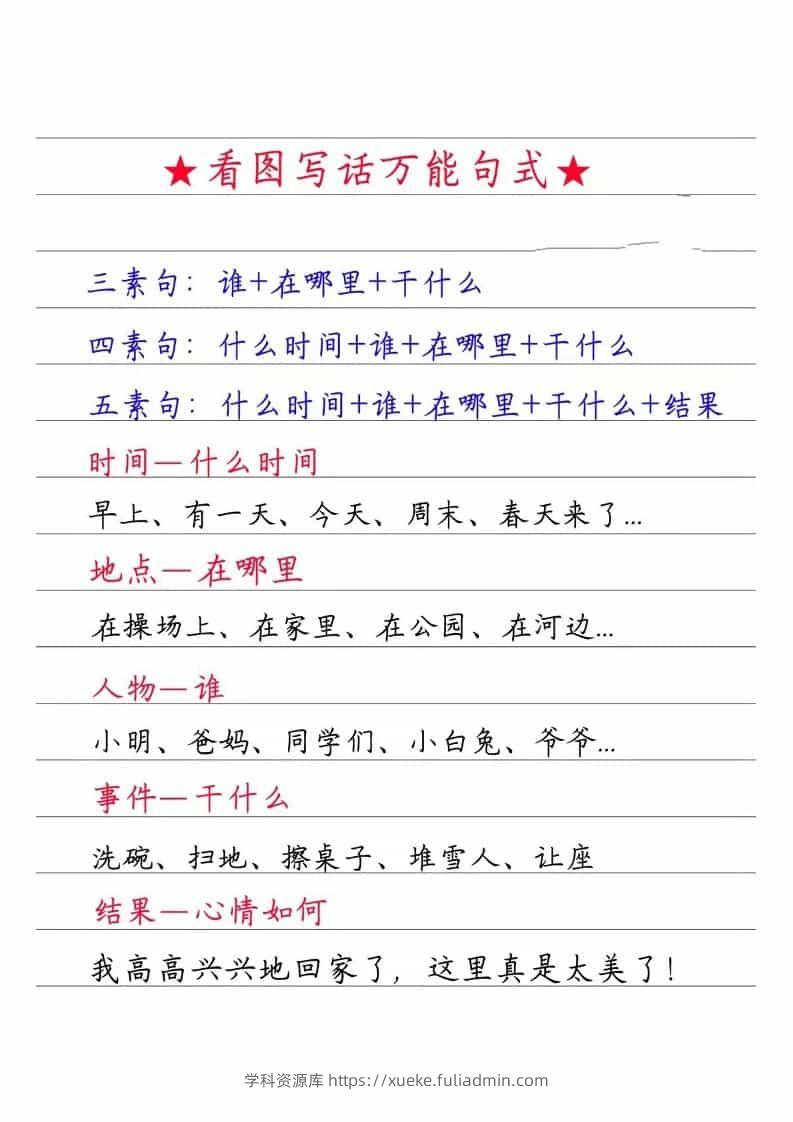 ★看图写话万能句式★
三素句：谁+在哪里+干什么
四素句：什么时间+谁+在哪里+干什么
五素句：什么时间+谁+在哪里+干什么+结果
时间—什么时间
早上、有一天、今天、周末、春天来了...
地点—在哪里
在操场上、在家里、在公园、在河边...
人物—谁
小明、爸妈、同学们、小白兔、爷爷...
事件—干什么
洗碗、扫地、擦桌子、堆雪人、让座
结果—心情如何
我高高兴兴地回家了，这里真是太美了！
学科资源库 https://xueke.fuliadmin.com